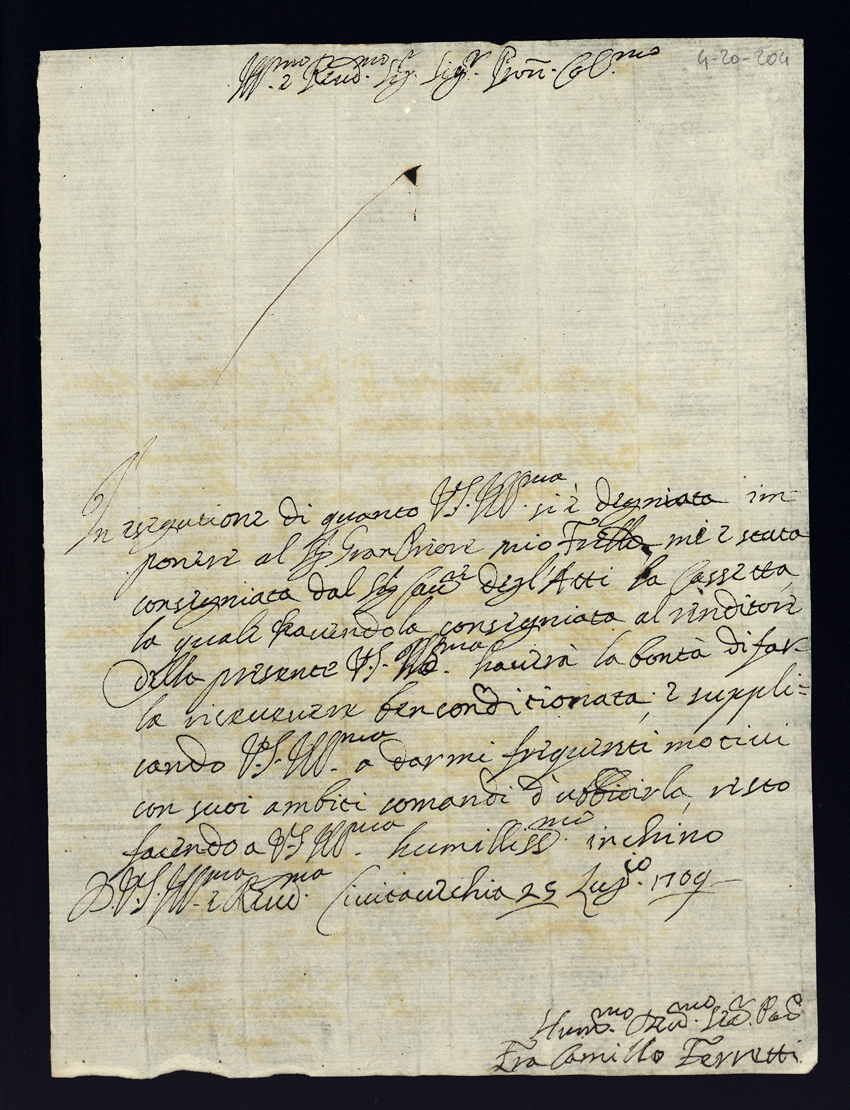 4-20-204
Ill.mo e Reud.mo Sig.r Sig.r Pron. Col.mo
In esegutione di quanto V.S. Ill.ma si è degniata im-
ponere al Sig.r Gran Priore mio Frello mi è stata
consegniata dal Sig.r Cau.re degl'Atti la Cassetta,
la quale hauendola consegniata al renditore
della presente V.S. Ill.ma hauerà la bontà di far-
la riceuere ben conditionata; e suppli-
cando V.S. Ill.ma a darmi frequenti motiui
con suoi ambiti comandi d'ubbidirla, resto
facendo a V.S. Ill.ma humiliss.mo inchino
D. V.S. Ill.ma e Reud.ma Ciuitauechia 25 Lug.o 1709
Hum.mo Deu.mo
Fra Camillo Ferretti